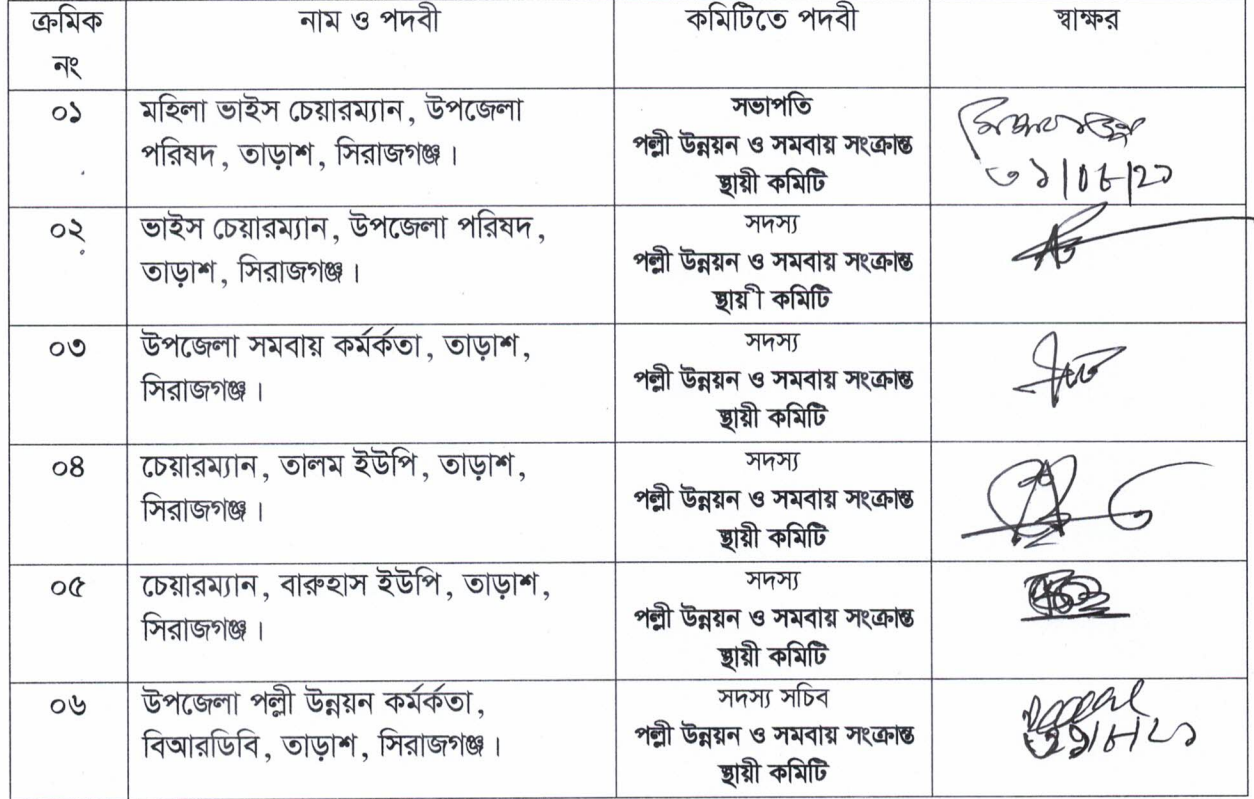 ক্রমিক নং	নাম ও পদবী	কমিটিতে পদবী	স্বাক্ষর
০১	মহিলা ভাইস চেয়ারম্যান, উপজেলা
পরিষদ, তাড়াশ, সিরাজগঞ্জ।
সভাপতি
পল্লী উন্নয়ন ও সমবায় সংক্রান্ত
স্থায়ী কমিটি
০২	ভাইস চেয়ারম্যান, উপজেলা পরিষদ,
তাড়াশ, সিরাজগঞ্জ।
সদস্য
পল্লী উন্নয়ন ও সমবায় সংক্রান্ত
স্থায়ী কমিটি
০৩	উপজেলা সমবায় কর্মর্কতা, তাড়াশ,
সিরাজগঞ্জ।
সদস্য
পল্লী উন্নয়ন ও সমবায় সংক্রান্ত
স্থায়ী কমিটি
০৪	চেয়ারম্যান, তালম ইউপি, তাড়াশ,
সিরাজগঞ্জ।
সদস্য
পল্লী উন্নয়ন ও সমবায় সংক্রান্ত
স্থায়ী কমিটি
০৫	চেয়ারম্যান, বারুহাস ইউপি, তাড়াশ,
সিরাজগঞ্জ।
সদস্য
পল্লী উন্নয়ন ও সমবায় সংক্রান্ত
স্থায়ী কমিটি
০৬	উপজেলা পল্লী উন্নয়ন কর্মর্কতা,
বিআরডিবি, তাড়াশ, সিরাজগঞ্জ।
সদস্য সচিব
পল্লী উন্নয়ন ও সমবায় সংক্রান্ত
স্থায়ী কমিটি